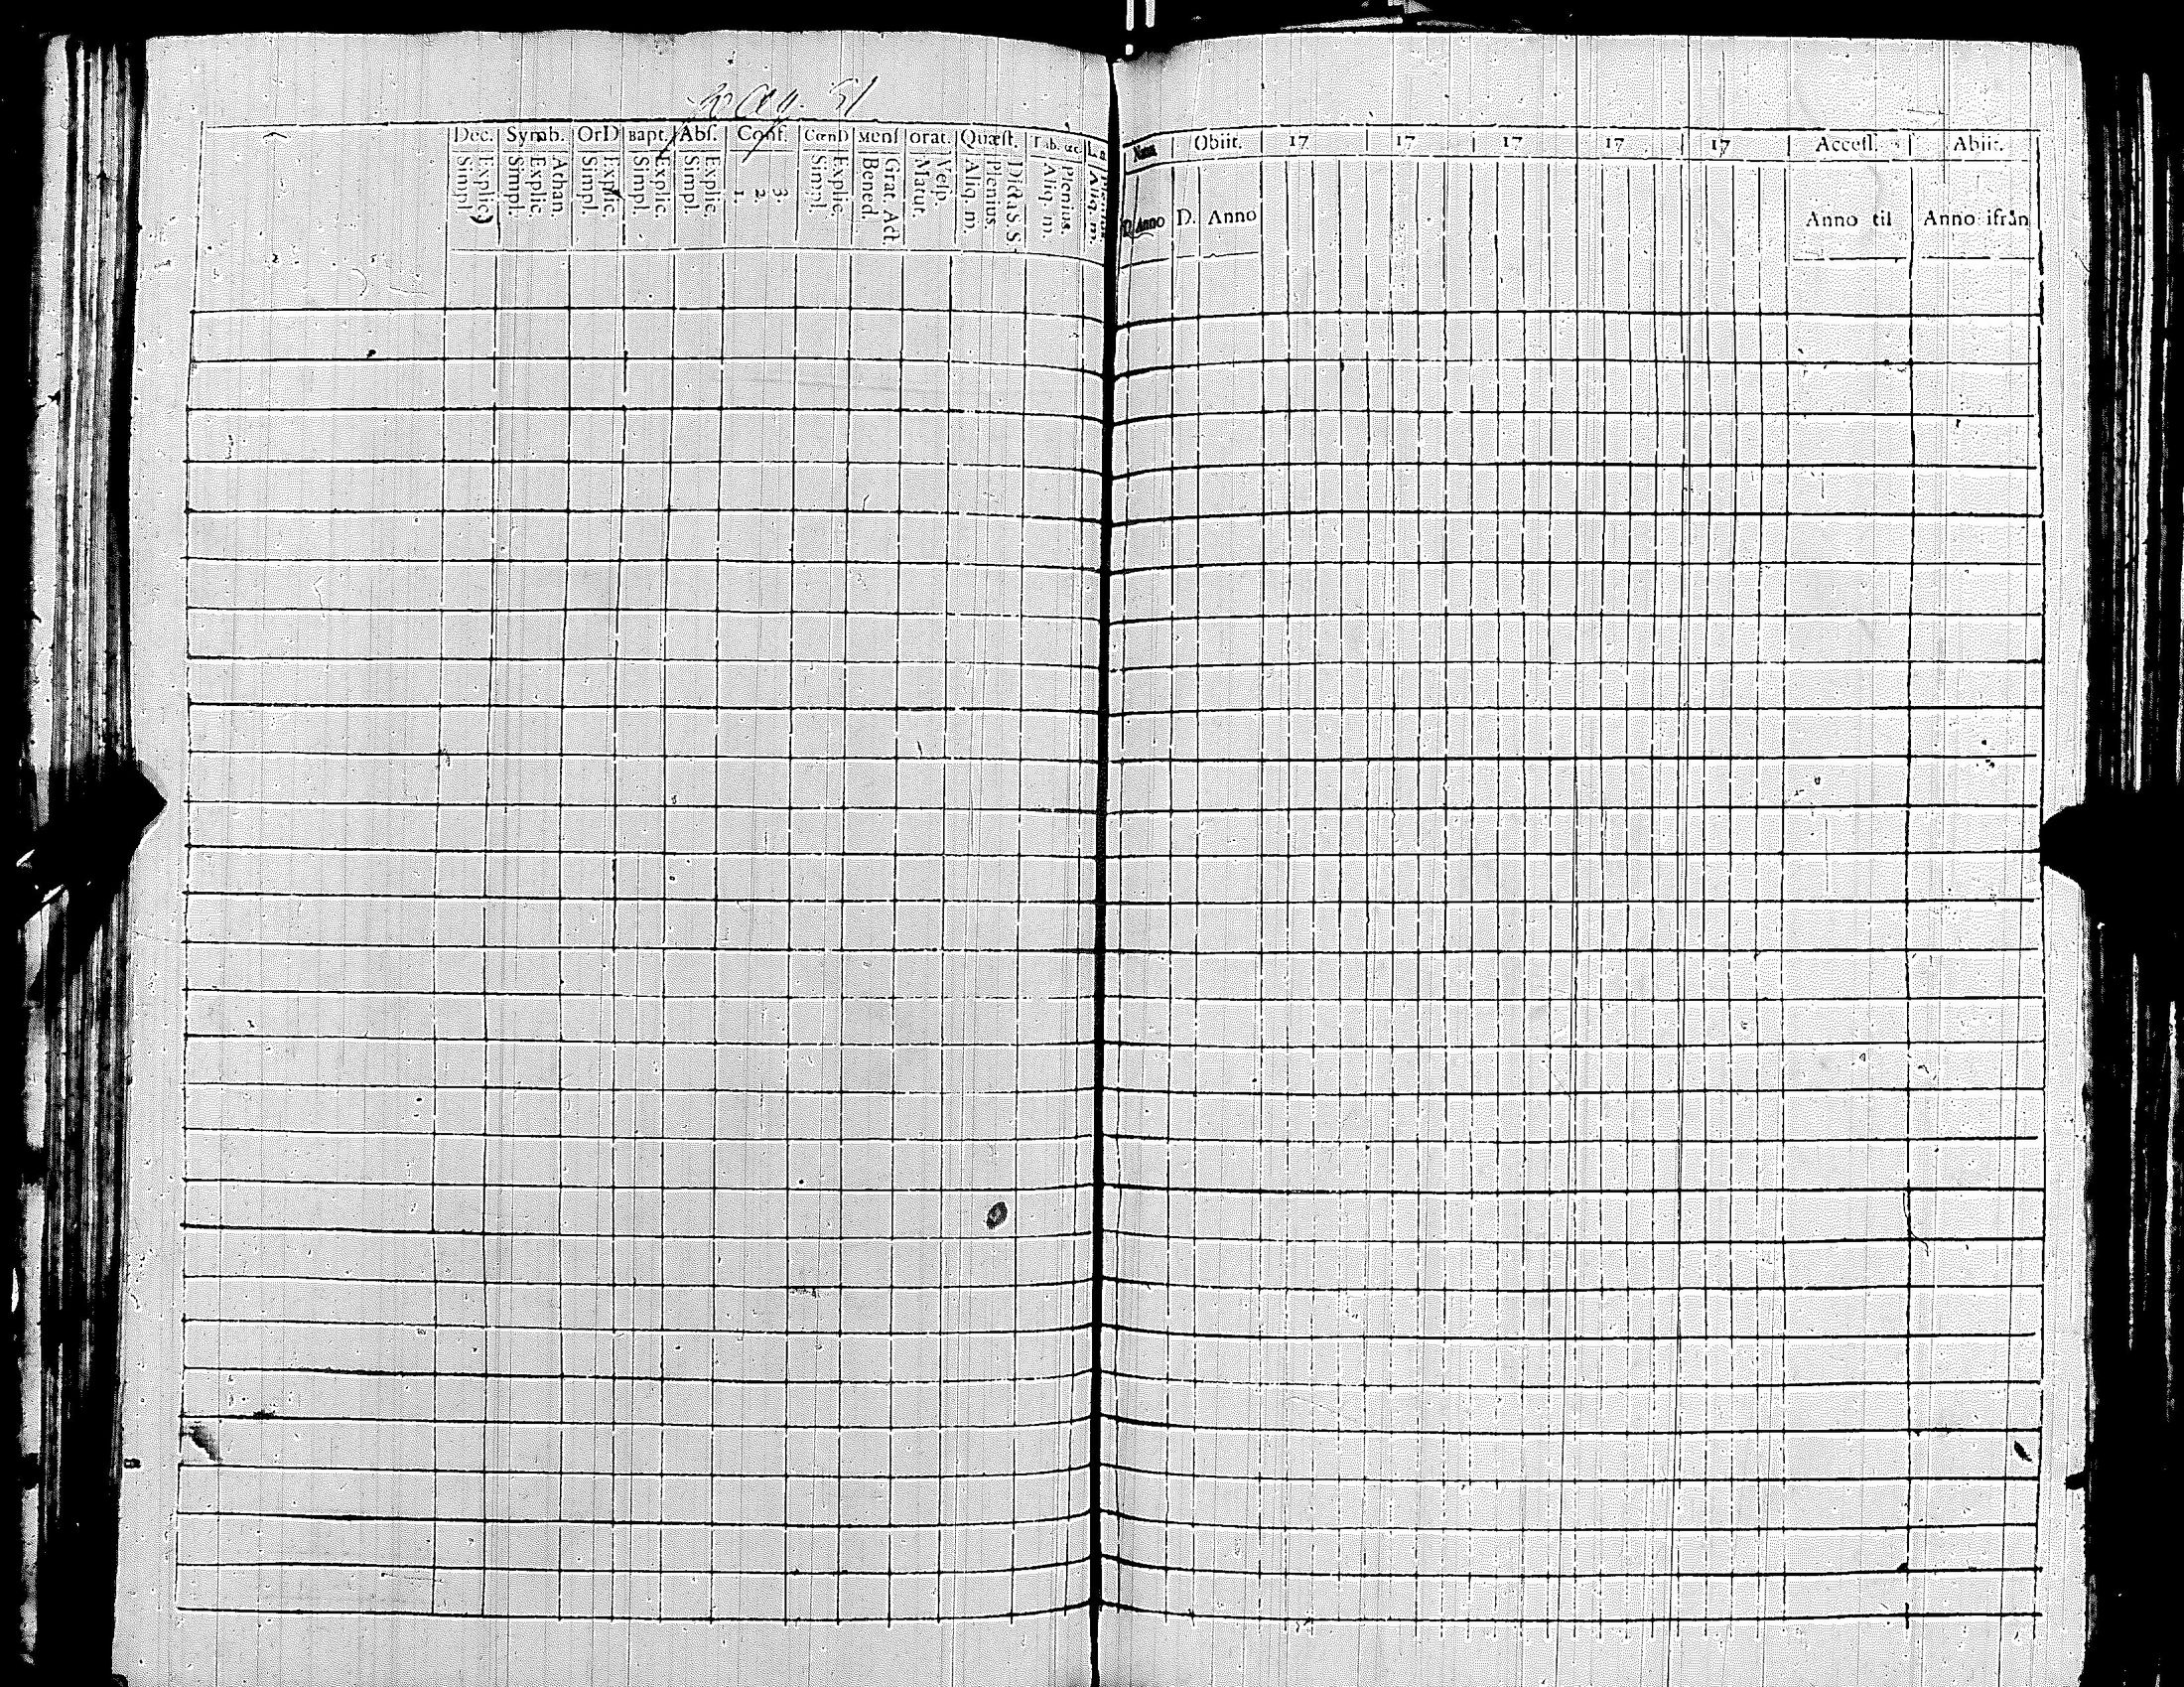 pag. 51
Dec. Symb. OrD Bapt. Abs. Conf. CœnD Mens orat. Quæst. Tab. œc. L. n.
Explic. Simpl. Athan. Explic. Simpl. Explic. Simpl. Explic. Simpl. Explic. Simpl. 3. 2. 1. Explic. Simpl. Grat. Act. Bened. Vesp. Matut. Dicta S. S. Plenius. Aliq. m. Plenius. Aliq. m. Aliq. m.
Natus Obiit. 17 17 17 17 17 Access. Abiit.
D. Anno D. Anno Anno til Anno ifrån